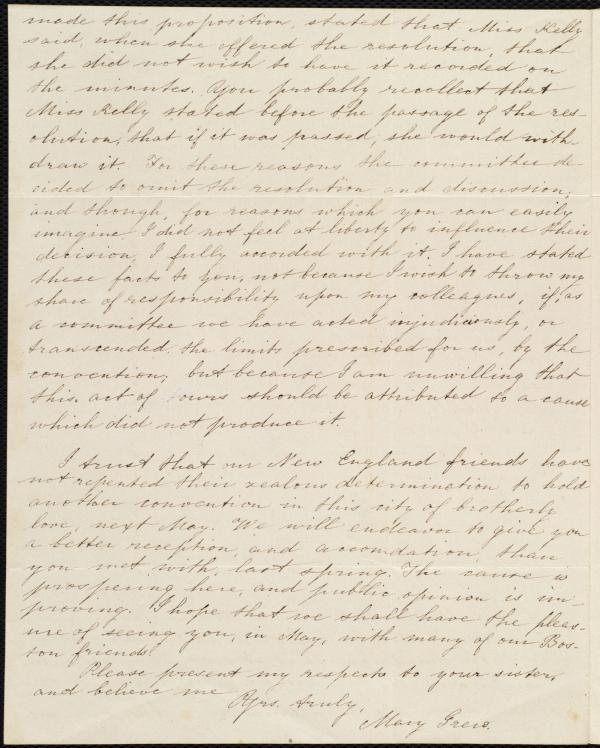 made this proposition, stated that Miss Kelly
said, when she offered the resolution, that
she did not wish to have it recorded on
the minutes. You probably recollect that
Miss Kelly stated before the passage of the res-
olution, that if it was passed, she would with-
draw it. For these reasons the committee de-
cided to omit the resolution and discussion,
and though, for reasons which you can easily
imagine, I did not feel at liberty to influence their
decision, I fully accorded with it. I have stated
these facts to you, not because I wish to throw my
share of responsibility upon my colleagues, if, as
a committee we have acted injudiciously, or
transcended, the limits prescribed for us, by the
convention; but because I am unwilling that
this act of ours should be attributed to a cause
which did not produce it.
I trust that our New England friends have
not repented their zealous determination to hold
another convention in this city of brotherly
love, next May. We will endeavor to give you
a better reception, and accomdation, than
you met with, last spring. The cause is
prospering here, and public opinion is im-
proving. I hope that we shall have the pleas-
ure of seeing you, in May, with many of our Bos-
ton friends.
Please present my respects to your sister,
and believe me
Yrs. truly,
Mary Grew.